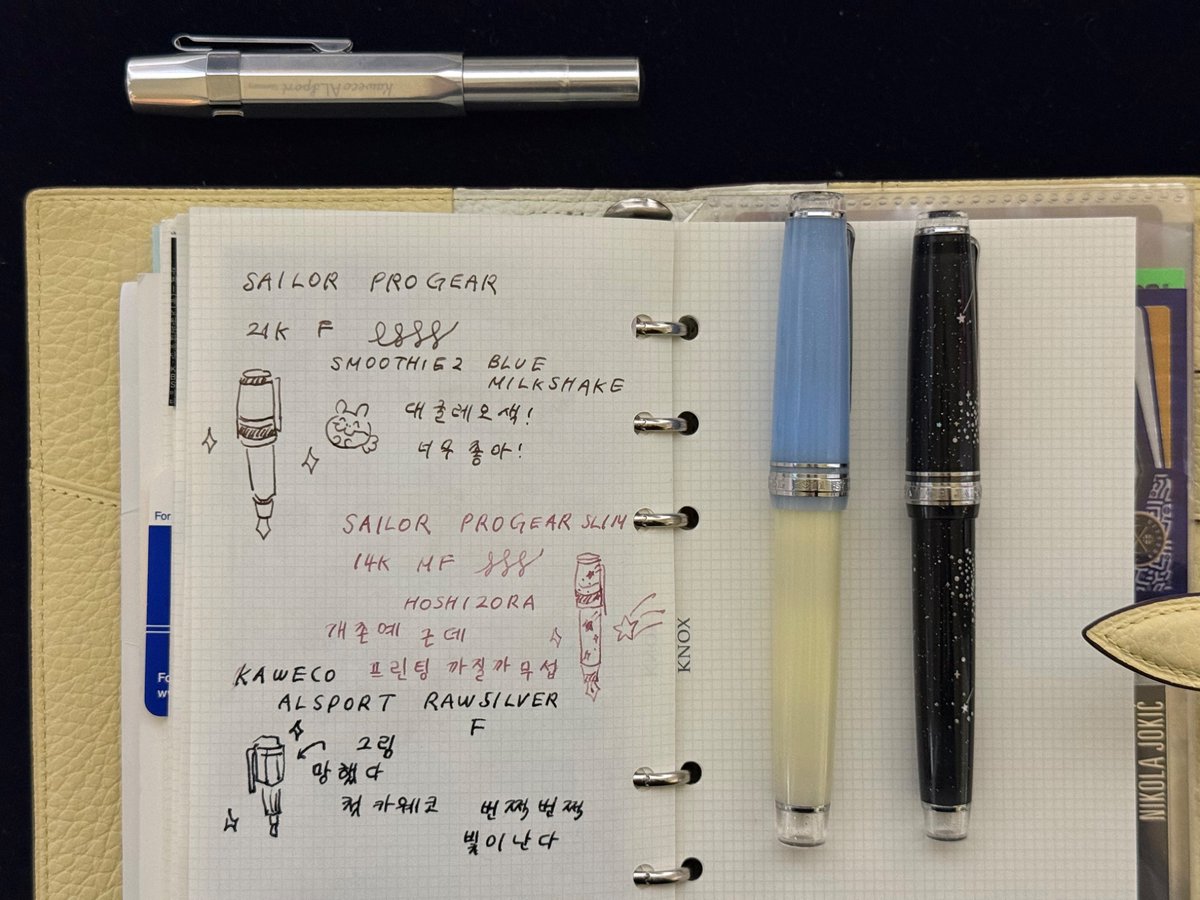 Kaweco ALSport Germany
SAILOR PRO GEAR
21K F
SMOOTHIE2 BLUE
MILKSHAKE
대굴레오색!
너무 좋아!
SAILOR PROGEAR SLIM
14K MF
HOSHIZORA
개존예 근데
프린팅 까질까 무섭
KAWECO
ALSPORT RAWSILVER
F
그림
망했다
첫 카웨코 번쩍번쩍
빛이난다
KNOX
For
Fo
ww
NIKOLA JOKIĆ